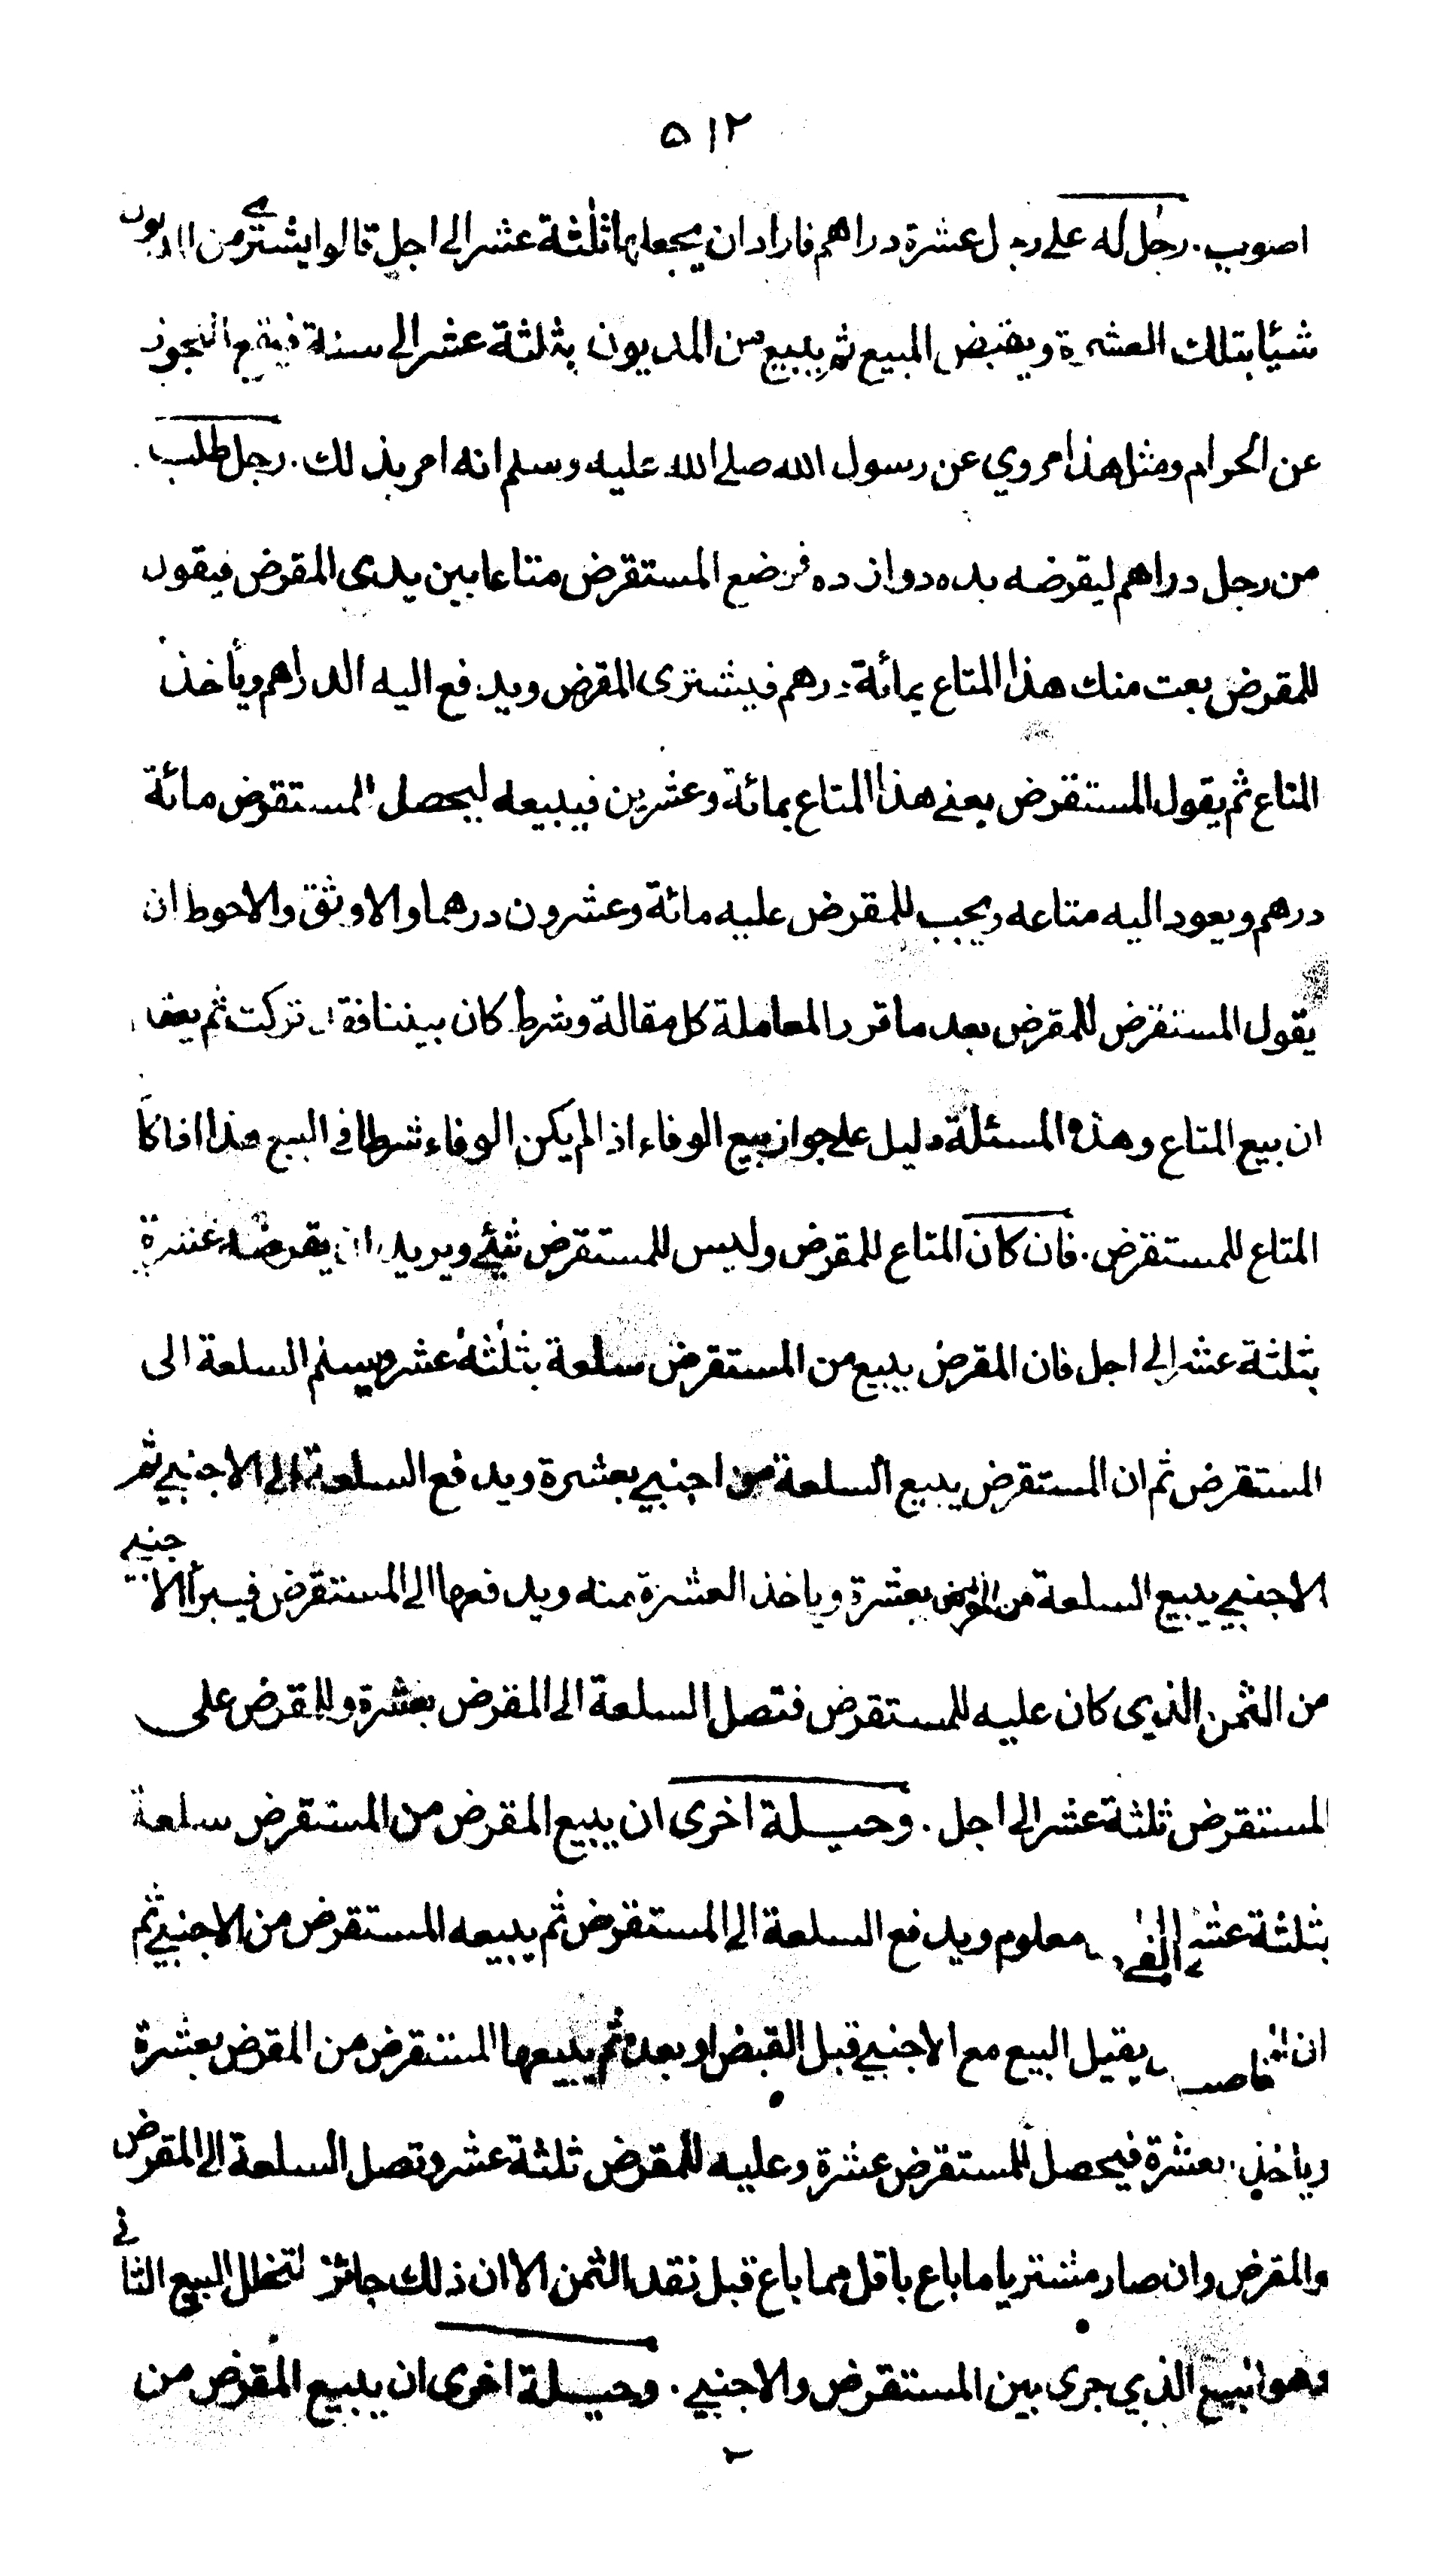 ٥١٢
اصوب. رجل له على رجل عشرة دراهم فاراد ان يجعلها ثلثة عشر الى اجل قالوا يشترى من المديون
شيئا بتلك العشرة ويقبض المبيع ثم يبيع من المديون بثلثة عشر الى سنة فيقع التجوز
عن الحرام ومثل هذا مروي عن رسول الله صلى الله عليه وسلم انه امر بذلك. رجل طلب
من رجل دراهم ليقرضه بده دوازده فوضع المستقرض متاعا بين يدى المقرض فيقول
للمقرض بعت منك هذا المتاع بمائة درهم فيشترى المقرض ويدفع اليه الدراهم ويأخذ
المتاع ثم يقول المستقرض بعنى هذا المتاع بمائة وعشرين فيبيعه ليحصل المستقرض مائة
درهم ويعود اليه متاعه ويجب للمقرض عليه مائة وعشرون درهما والاوثق والاحوط ان
يقول المستقرض للمقرض بعد ما قرر المعاملة كل مقالة وشرط كان بيننا فقد تركت ثم يعقد
ان بيع المتاع وهذه المسئلة دليل على جواز بيع الوفاء اذا لم يكن الوفاء شرطا في البيع هذا اذا كان
المتاع للمستقرض. فان كان المتاع للمقرض وليس للمستقرض شئ ويريد ان يقرضه عشرة
بثلثة عشر الى اجل فان المقرض يبيع من المستقرض سلعة بثلثة عشر ويسلم السلعة الى
المستقرض ثم ان المستقرض يبيع السلعة من اجنبي بعشرة ويدفع السلعة الى الاجنبي ثم
الاجنبي يبيع السلعة من المقرض بعشرة وياخذ العشرة منه ويدفعها الى المستقرض فيبرأ الاجنبي
من الثمن الذي كان عليه للمستقرض فتصل السلعة الى المقرض بعشرة وللمقرض على
المستقرض ثلثة عشر الى اجل. وحيلة اخرى ان يبيع المقرض من المستقرض سلعة
بثلثة عشر معلوم ويدفع السلعة الى المستقرض ثم يبيعه المستقرض من الاجنبي ثم
ان يقيل البيع مع الاجنبي قبل القبض او بعده ثم يبيعها المستقرض من المقرض بعشرة
وياخذ بعشرة فيحصل للمستقرض عشرة وعليه للمقرض ثلثة عشر وتصل السلعة الى المقرض
والمقرض وان صار مشتريا ما باع باقل مما باع قبل نقد الثمن الا ان ذلك جائز لتخلل البيع الثاني
وهو البيع الذي جرى بين المستقرض والاجنبي. وحيلة اخرى ان يبيع المقرض من